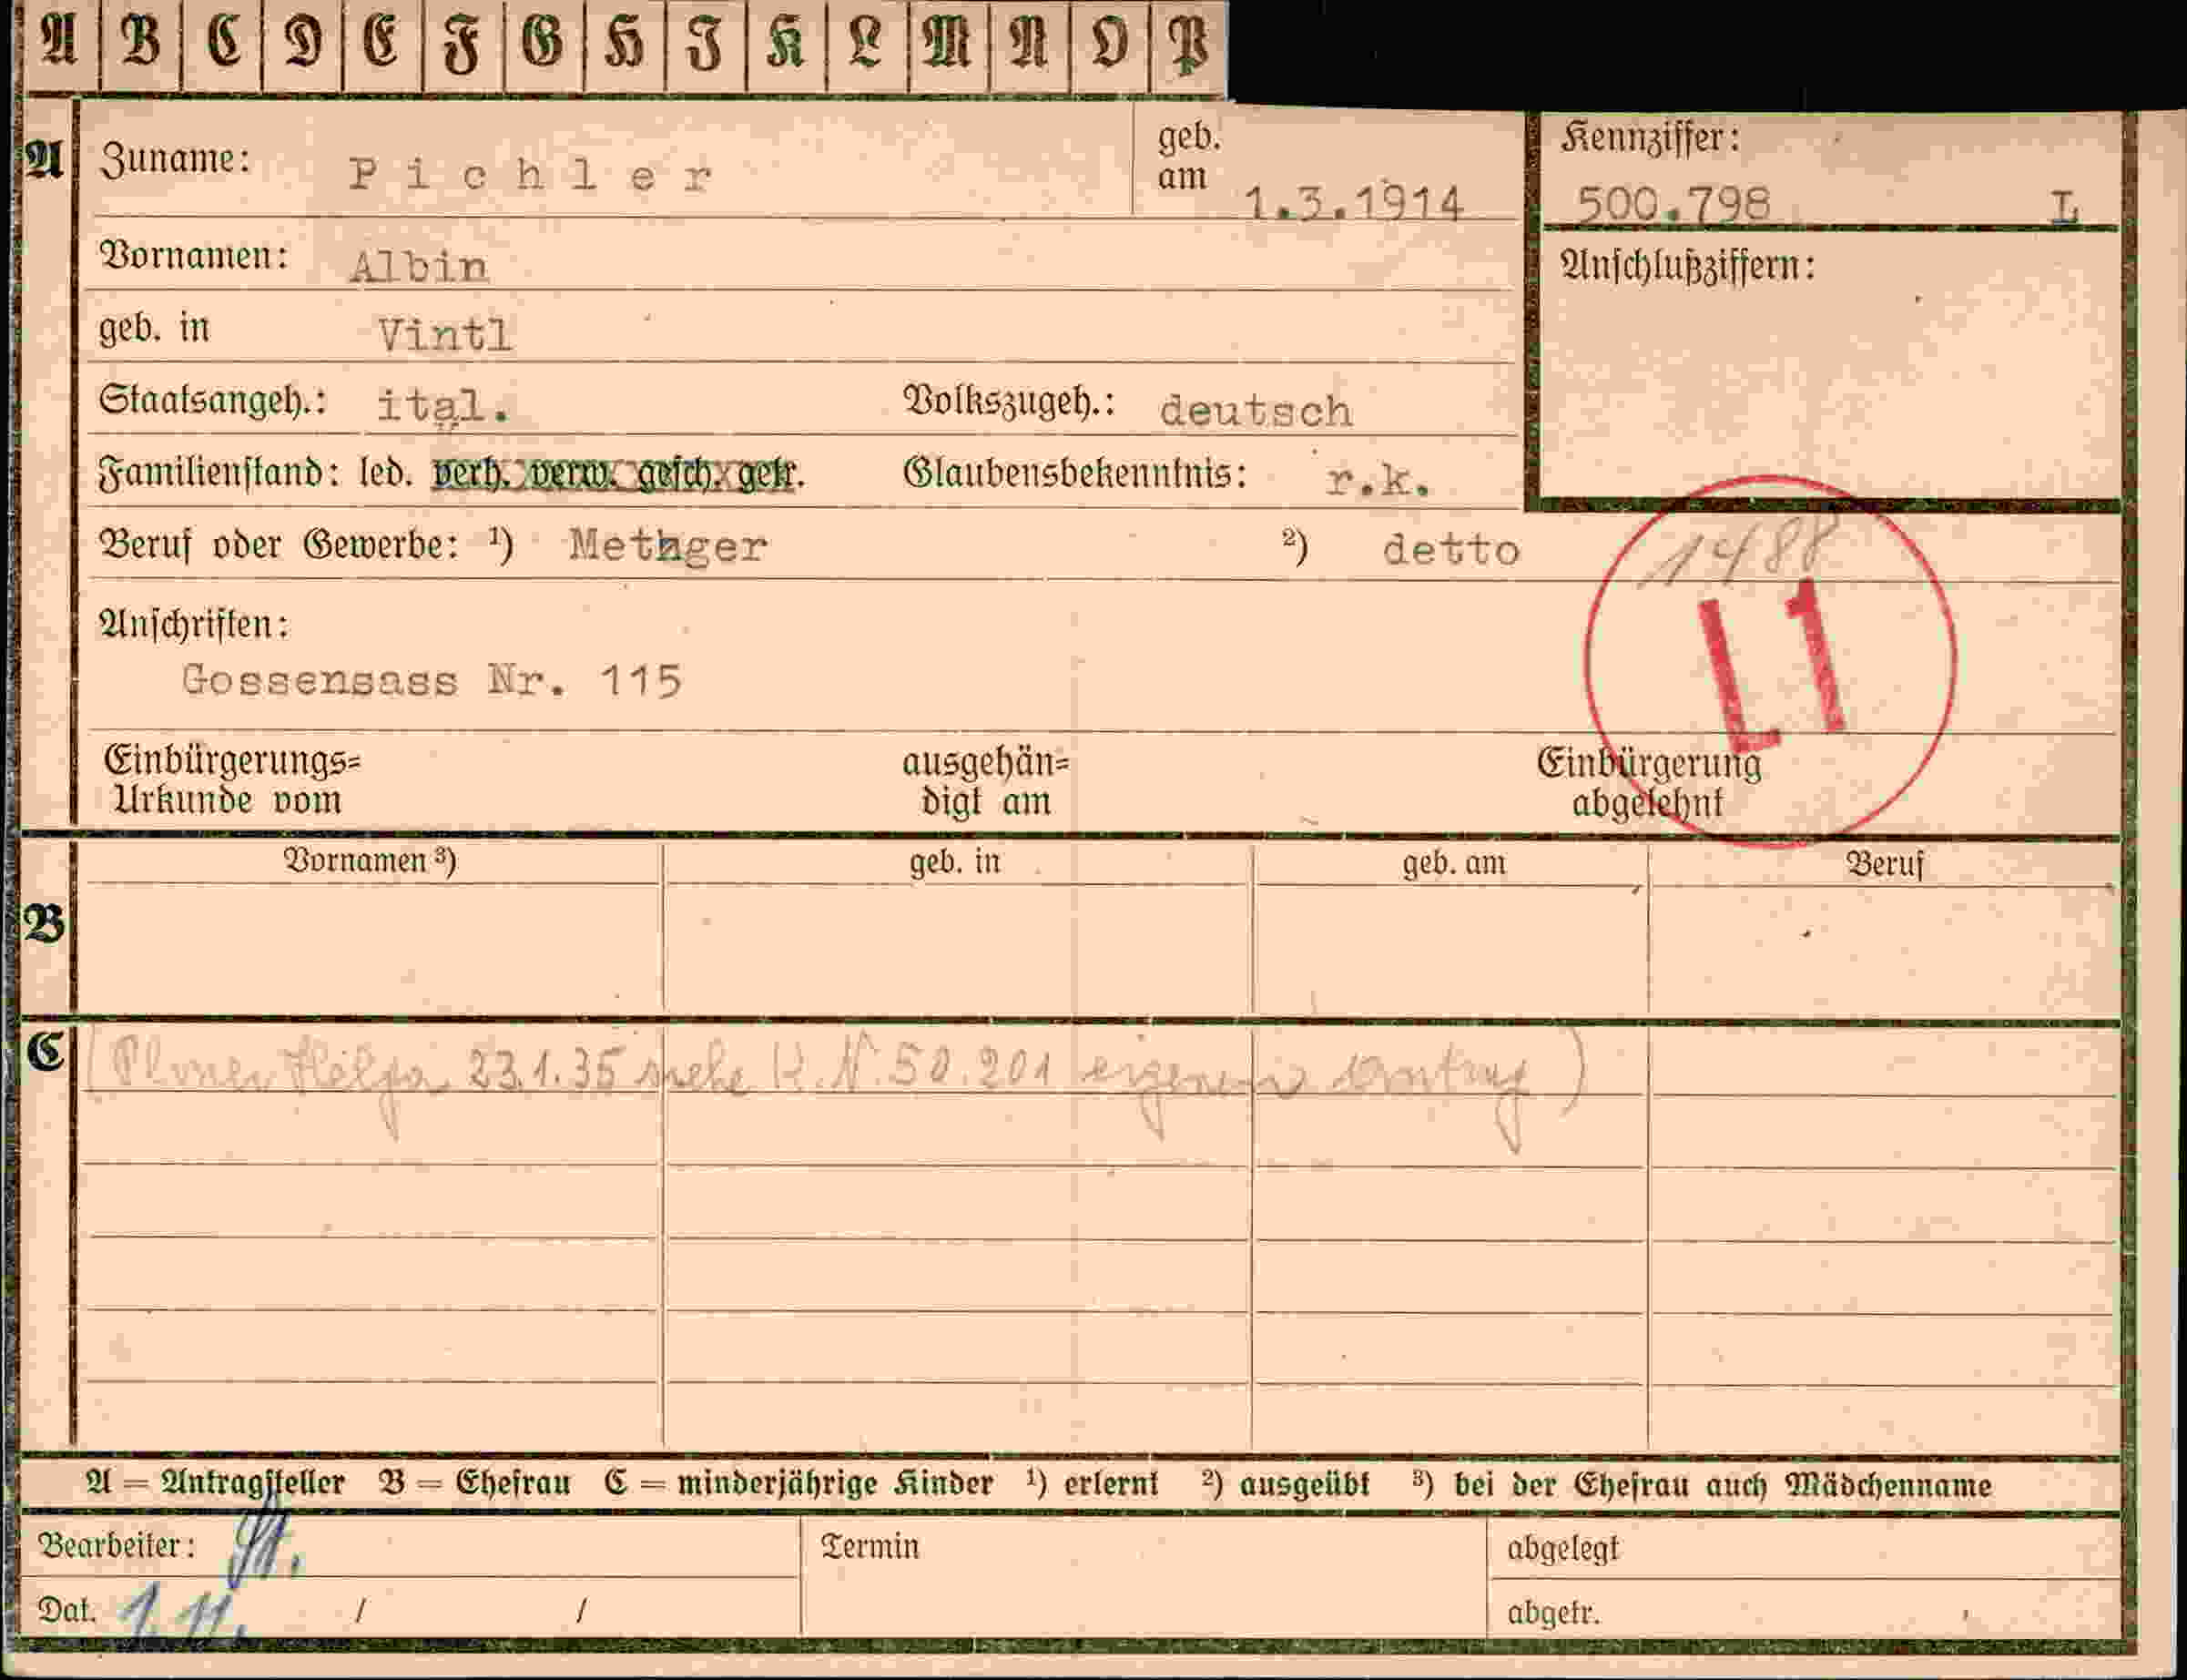 A B C D E F G H I K L M N O P
A Zuname: Pichler geb. am 1.3.1914 Kennziffer: 500.798 L
Vornamen: Albin Anschlußziffern:
geb. in Vintl
Staatsangeh.: ital. Volkszugeh.: deutsch
Familienstand: led. verh. verw. gesch. getr. Glaubensbekenntnis: r.k.
Beruf oder Gewerbe: ¹) Metzger ²) detto
1488
L1
Anschriften:
Gossensass Nr. 115
Einbürgerungs= ausgehän= Einbürgerung
Urkunde vom digt am abgelehnt
Vornamen ³) geb. in geb. am Beruf
B
C ( Helga 23.1.35 siehe K.N. 50.201 eigenen Antrag )
A = Antragsteller B = Ehefrau C = minderjährige Kinder ¹) erlernt ²) ausgeübt ³) bei der Ehefrau auch Mädchenname
Bearbeiter: Termin abgelegt
Dat. 1.11. / / abgetr.